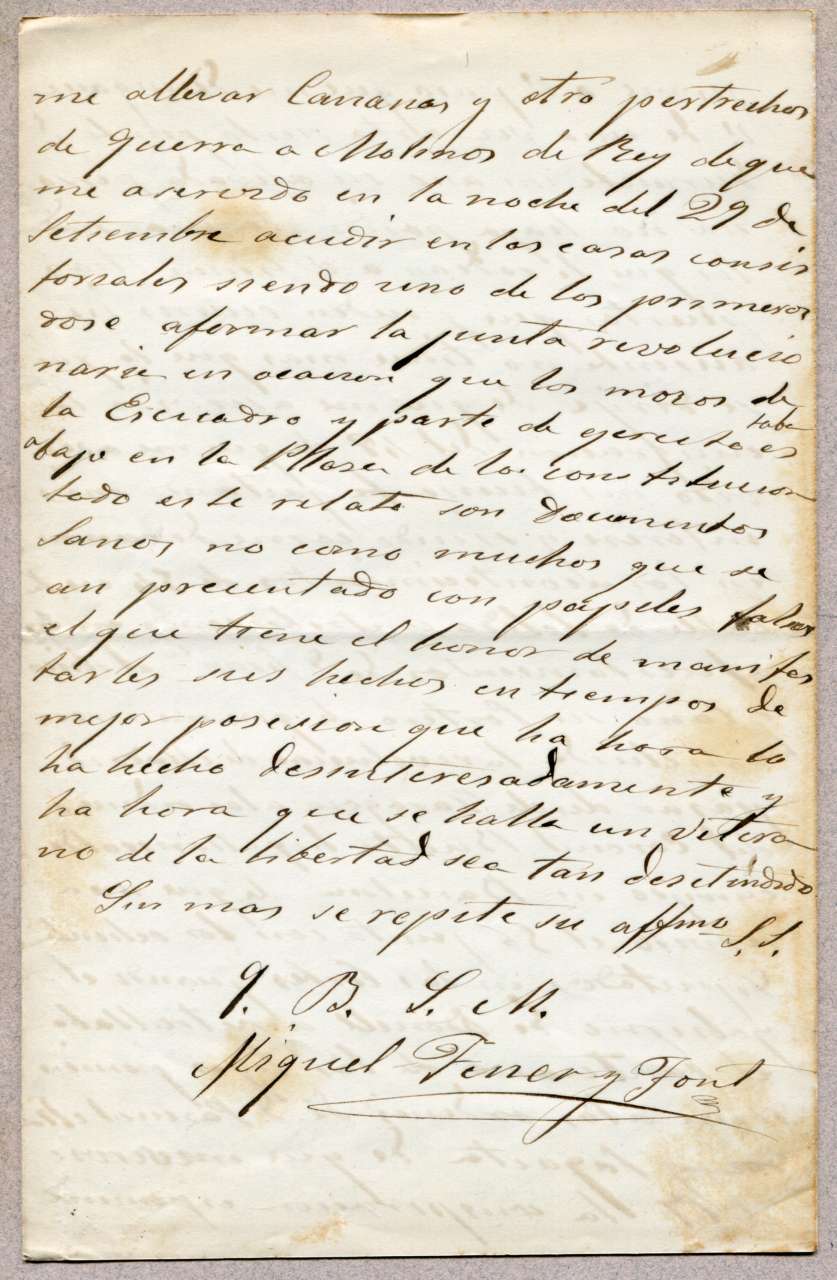 me allevar Cananas y otro pertrechos
de Guerra a Molinos de Rey de que
me a sercirdo en la noche del 29 de
Setiembre acudir en los casas consis
toriales siendo uno de los primeros
dose aformar la junta revolucio
narie en ocacion que los mozos de
la Escuadro y parte de gercito estaba
abajo en la Plasa de la constitucion
todo este relato son Documentos
Sanos no como muchos que se
an precentado con papeles falsos
el que tiene el honor de manifes
tarles sus hechos en tiempos de
mejor posesion que ha hora lo
ha hecho desinteresadamente y
ha hora que se halla un vetera
no de la libertad sea tan desetindido
Sin mas se repite su affmo S. S.
q. B. S. M.
Miquel Ferrer y Font